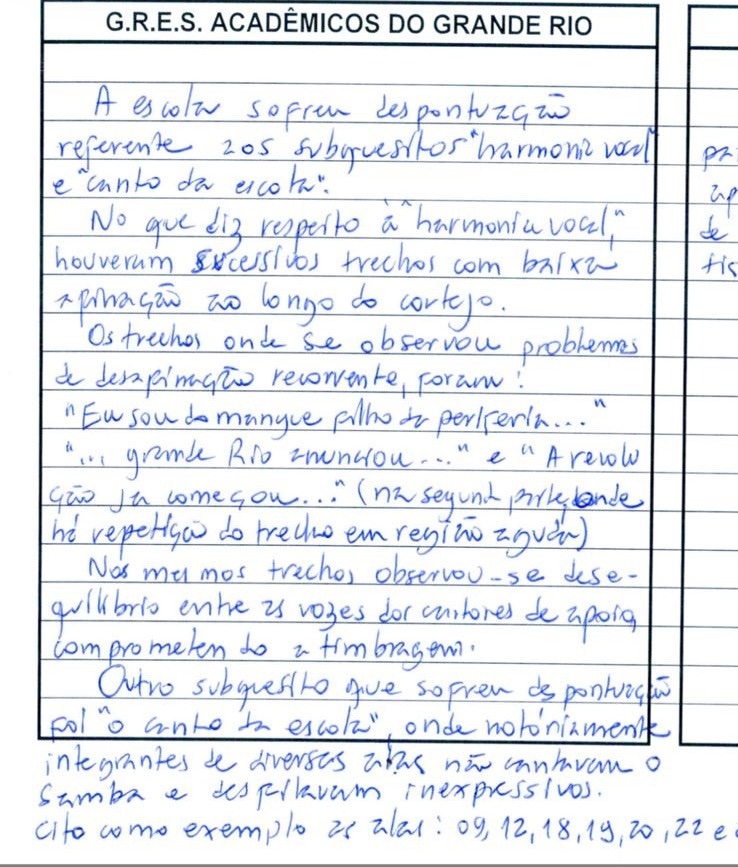 G.R.E.S. ACADÊMICOS DO GRANDE RIO
A escola sofreu despontuação
referente aos subquesitos "harmonia vocal"
e "canto da escola".
No que diz respeito à "harmonia vocal",
houveram excessivos trechos com baixa
afinação ao longo do cortejo.
Os trechos onde se observou problemas
de desafinação recorrente, foram:
"Eu sou do mangue filho da periferia..."
"... grande Rio anunciou..." e "A revolu
ção já começou..." (na segunda parte, onde
há repetição do trecho em região aguda)
Nos mesmos trechos observou-se dese-
quilíbrio entre as vozes dos cantores de apoio,
comprometendo a timbragem.
Outro subquesito que sofreu despontuação
foi "o canto da escola", onde notóriamente
integrantes de diversas alas não cantavam o
samba e desfilavam inexpressivos.
Cito como exemplo as alas: 09, 12, 18, 19, 20, 22 e
de